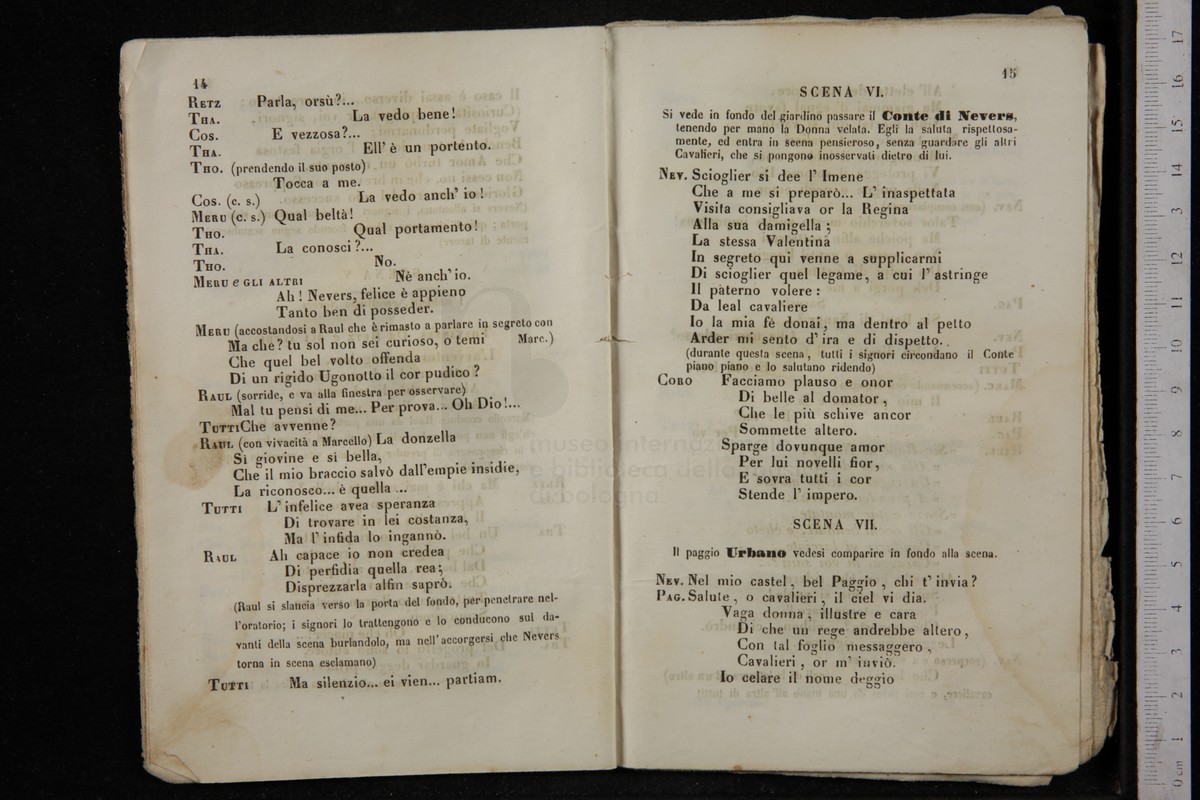 14
RETZ Parla, orsù?...
THA. La vedo bene!
COS. E vezzosa?...
THA. Ell' è un portento.
THO. (prendendo il suo posto)
Tocca a me.
COS. (c. s.) La vedo anch' io!
MERU (c. s.) Qual beltà!
THO. Qual portamento!
THA. La conosci?...
THO. No.
MERU e GLI ALTRI Nè anch' io.
Ah! Nevers, felice è appieno
Tanto ben di posseder.
MERU (accostandosi a Raul che è rimasto a parlare in segreto con
Ma che? tu sol non sei curioso, o temi Marc.)
Che quel bel volto offenda
Di un rigido Ugonotto il cor pudico?
RAUL (sorride, e va alla finestra per osservare)
Mal tu pensi di me... Per prova... Oh Dio!...
TUTTI Che avvenne?
RAUL (con vivacità a Marcello) La donzella
Sì giovine e sì bella,
Che il mio braccio salvò dall'empie insidie,
La riconosco... è quella ...
TUTTI L' infelice avea speranza
Di trovare in lei costanza,
Ma l' infida lo ingannò.
RAUL Ah capace io non credea
Di perfidia quella rea;
Disprezzarla alfin saprò.
(Raul si slancia verso la porta del fondo, per penetrare nel-
l'oratorio; i signori lo trattengono e lo conducono sul da-
vanti della scena burlandolo, ma nell'accorgersi che Nevers
torna in scena esclamano)
TUTTI Ma silenzio... ei vien... partiam.
15
SCENA VI.
Si vede in fondo del giardino passare il Conte di Nevers,
tenendo per mano la Donna velata. Egli la saluta rispettosa-
mente, ed entra in scena pensieroso, senza guardare gli altri
Cavalieri, che si pongono inosservati dietro di lui.
NEV. Scioglier si dee l' Imene
Che a me si preparò... L' inaspettata
Visita consigliava or la Regina
Alla sua damigella;
La stessa Valentina
In segreto qui venne a supplicarmi
Di scioglier quel legame, a cui l' astringe
Il paterno volere:
Da leal cavaliere
Io la mia fè donai, ma dentro al petto
Arder mi sento d' ira e di dispetto.
(durante questa scena, tutti i signori circondano il Conte
piano piano e lo salutano ridendo)
CORO Facciamo plauso e onor
Di belle al domator,
Che le più schive ancor
Sommette altero.
Sparge dovunque amor
Per lui novelli fior,
E sovra tutti i cor
Stende l' impero.
SCENA VII.
Il paggio Urbano vedesi comparire in fondo alla scena.
NEV. Nel mio castel, bel Paggio, chi t' invia?
PAG. Salute, o cavalieri, il ciel vi dia.
Vaga donna, illustre e cara
Di che un rege andrebbe altero,
Con tal foglio messaggero,
Cavalieri, or m' inviò.
Io celare il nome deggio